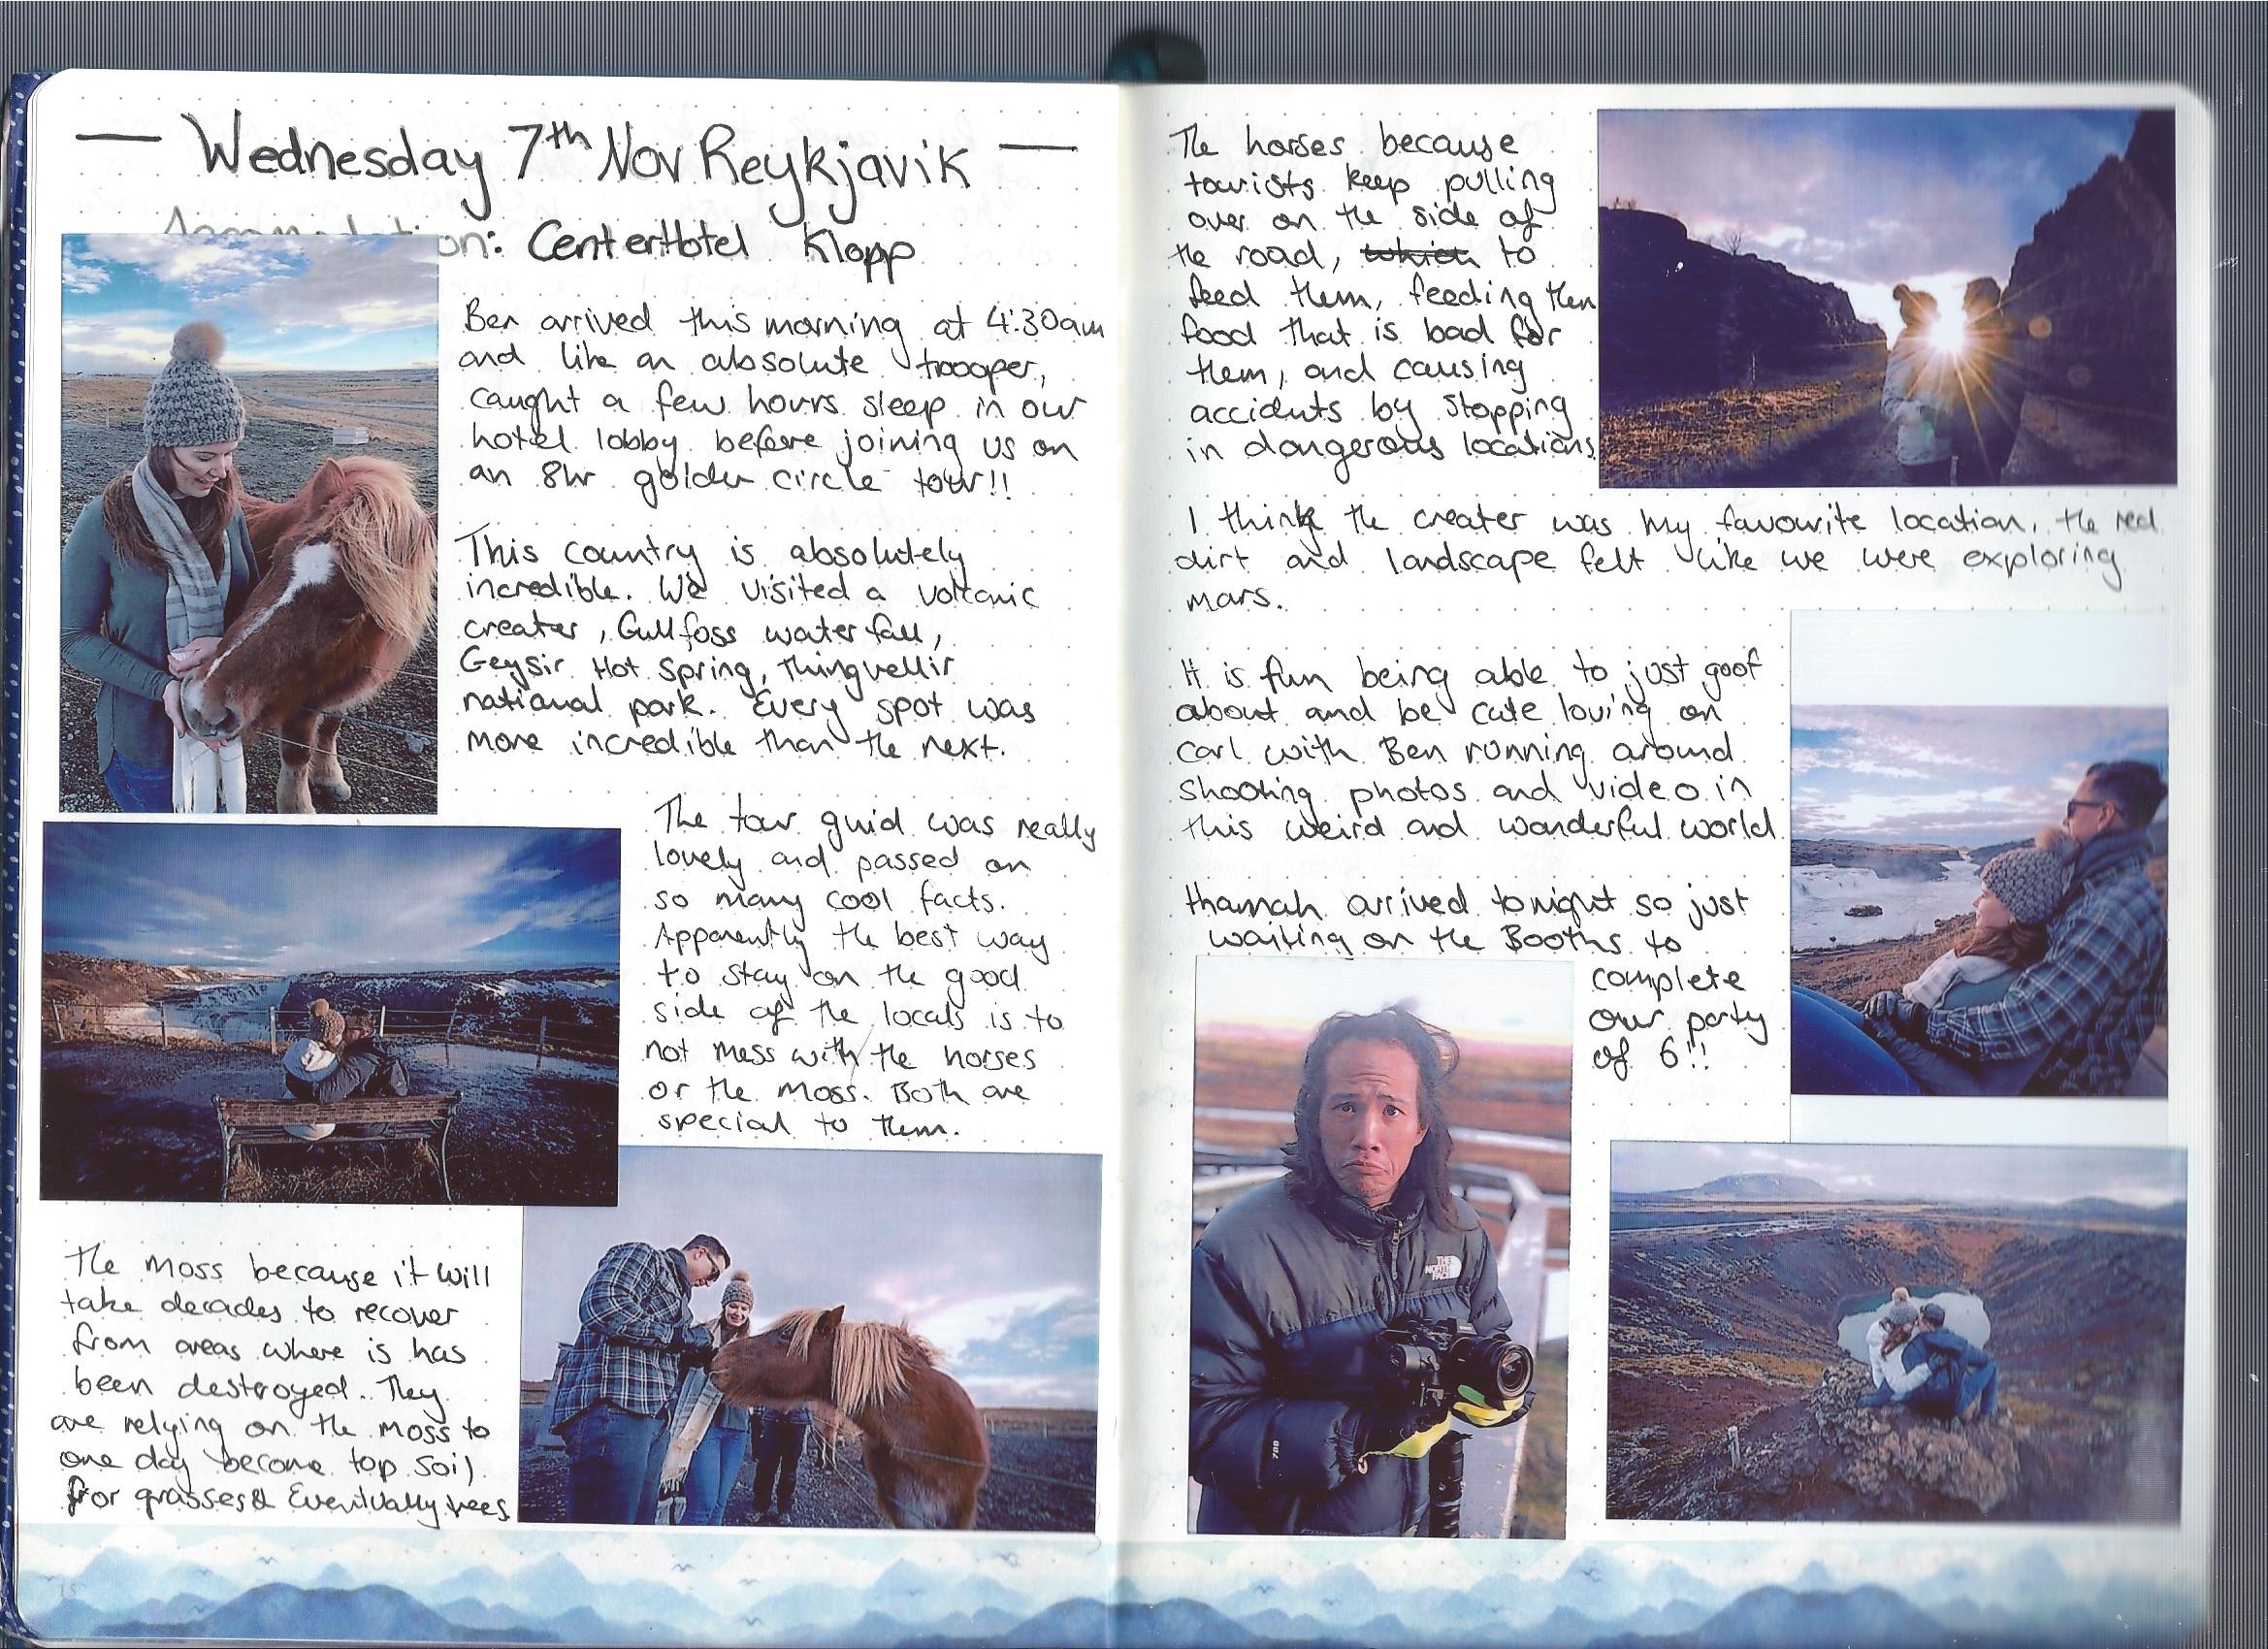 Wednesday 7th Nov Reykjavik
Accomodation: CenterHotel Klopp
Ben arrived this morning at 4:30am
and like an absolute troooper,
caught a few hours sleep in our
hotel lobby before joining us on
an 8hr golden circle tour!!
This country is absolutely
incredible. We visited a volcanic
creater, Gullfoss waterfall,
Geysir Hot Spring, Thingvellir
national park. Every spot was
more incredible than the next.
The tour guid was really
lovely and passed on
so many cool facts.
Apparently the best way
to stay on the good
side of the locals is to
not mess with the horses
or the moss. Both are
special to them.
The moss because it will
take decades to recover
from areas where is has
been destroyed. They
are relying on the moss to
one day become top soil
for grasses & Eventually trees
15
The horses because
tourists keep pulling
over on the side of
the road, which to
feed them, feeding them
food that is bad for
them, and causing
accidents by stopping
in dangerous locations.
I think the creater was my favourite location, the red
dirt and landscape felt like we were exploring
mars.
It is fun being able to just goof
about and be cute loving on
Carl with Ben running around
shooting photos and video in
this weird and wonderful world
arrived tonight so just
waiting on the Booths to
complete
our party
of 6!!
THE
NORTH
FACE
700